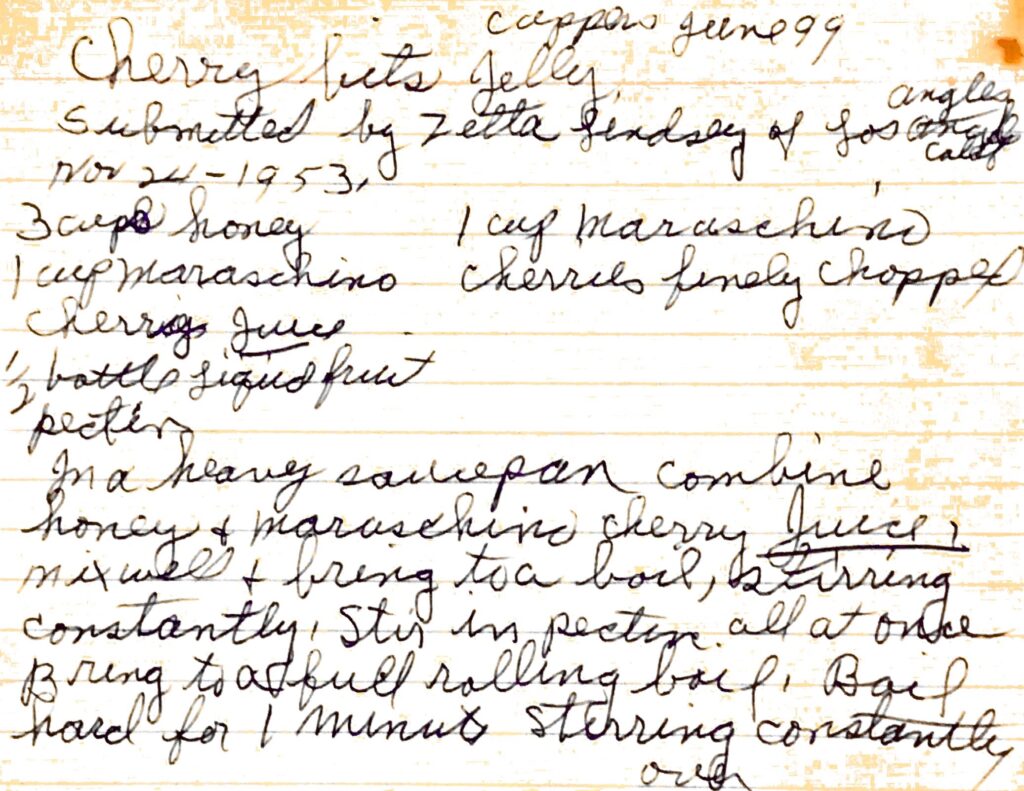 Cappers June 99
Cherry bits Jelly
Submitted by Zetta Lindsey of Los angles
Calif
Nov 24-1953,
3 cups honey
1 cup maraschino
cherry Juice
1/2 bottle liquid fruit
pectin
1 cup maraschino
cherries finely chopped
In a heavy saucepan combine
honey & maraschino cherry Juice,
mix well & bring to a boil, stirring
constantly, Stir in pectin all at once
Bring to a full rolling boil, Boil
hard for 1 minut stirring constantly
over